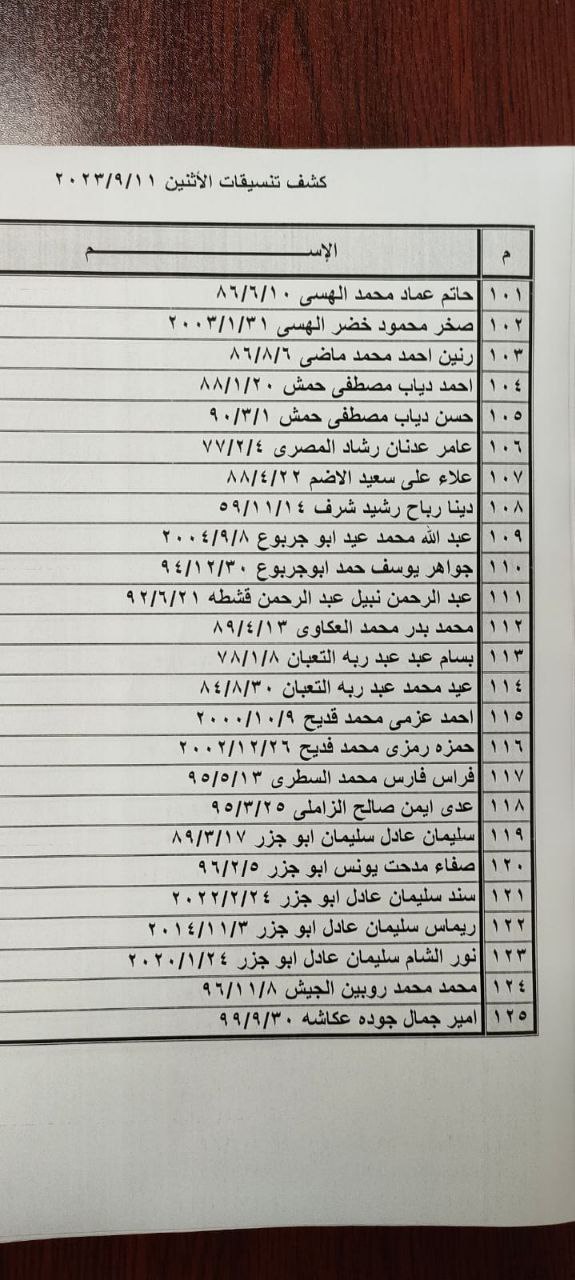 كشف تنسيقات الأثنين ٢٠٢٣/٩/١١
م الإســـم
١٠١ حاتم عماد محمد الهسى ٨٦/٦/١٠
١٠٢ صخر محمود خضر الهسى ٢٠٠٣/١/٣١
١٠٣ رنين احمد محمد ماضى ٨٦/٨/٦
١٠٤ احمد دياب مصطفى حمش ٨٨/١/٢٠
١٠٥ حسن دياب مصطفى حمش ٩٠/٣/١
١٠٦ عامر عدنان رشاد المصرى ٧٧/٢/٤
١٠٧ علاء على سعيد الاضم ٨٨/٤/٢٢
١٠٨ دينا رباح رشيد شرف ٥٩/١١/١٤
١٠٩ عبد الله محمد عيد ابو جربوع ٢٠٠٤/٩/٨
١١٠ جواهر يوسف حمد ابوجربوع ٩٤/١٢/٣٠
١١١ عبد الرحمن نبيل عبد الرحمن قشطه ٩٢/٦/٢١
١١٢ محمد بدر محمد العكاوى ٨٩/٤/١٣
١١٣ بسام عبد عبد ربه التعبان ٧٨/١/٨
١١٤ عيد محمد عبد ربه التعبان ٨٤/٨/٣٠
١١٥ احمد عزمى محمد قديح ٢٠٠٠/١٠/٩
١١٦ حمزه رمزى محمد فديح ٢٠٠٢/١٢/٢٦
١١٧ فراس فارس محمد السطرى ٩٥/٥/١٣
١١٨ عدى ايمن صالح الزاملى ٩٥/٣/٢٥
١١٩ سليمان عادل سليمان ابو جزر ٨٩/٣/١٧
١٢٠ صفاء مدحت يونس ابو جزر ٩٦/٢/٥
١٢١ سند سليمان عادل ابو جزر ٢٠٢٢/٢/٢٤
١٢٢ ريماس سليمان عادل ابو جزر ٢٠١٤/١١/٣
١٢٣ نور الشام سليمان عادل ابو جزر ٢٠٢٠/١/٢٤
١٢٤ محمد محمد روبين الجيش ٩٦/١١/٨
١٢٥ امير جمال جوده عكاشه ٩٩/٩/٣٠